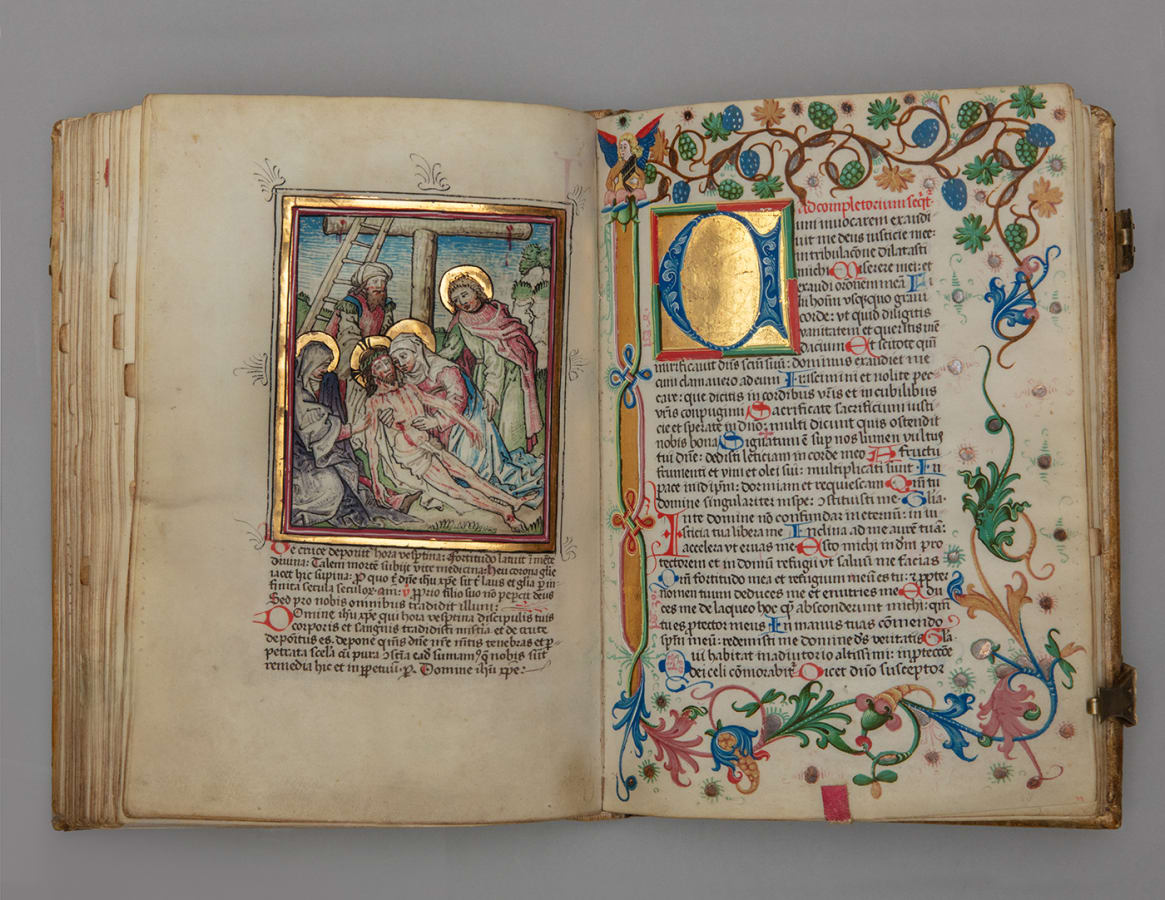 De cruce deponit hora vesptina: fortitudo latuit i mẽte
divina: Talem morte subijt vite medicina: heu corona glie
iacet hic supina: P quo t dñe ihu xpe sit laus et glia p in-
finita secula seculor. am: ꝟ Pprio filio suo nõ pepcit deus
Sed pro nobis omnibus tradidit illum:
Domine ihu xpe qui hora vesptina discipulis tuis
corporis et sanguis tradidisti misteria: et de cruce
depositus es. depone qms dñe mentis tenebras et p-
petrata scela: cu pura
remedia hic et in ppetuum. P. Domine ihu xpe:
Ad completorium seqt
um invocarem exaudi
vit me deus iusticie mee:
in tribulacõne dilatasti
michi Miserere mei: et
exaudi oronem meã Fi-
lii hoĩm vsqquo gravi
corde: vt quid diligitis
vanitatem et queritis mẽ
dacium Et scitote qm̃
mirificavit dñs scm̃ suũ: dominus exaudiet me
cum clamavero ad eum Irascimini et nolite pec
care: que dicitis in cordibus vr̃is et in cubilibus
vr̃is conpugimi Sacrificate sacrificium iusti
cie et sperate in dño: multi dicunt quis ostendit
nobis bona Signatum ẽ sup nos lumen vultus
tui dñe: dedisti leticiam in corde meo A fructu
frumenti et vini et olei sui: multiplicati sunt In
pace in idip̃m: dormiam et requiescam Qm̃ tu
domine singulariter in spe: ɔstituisti me. Gla.
In te domine nõ confundar in eternũ: in iu
sticia tua libera me Inclina ad me aurẽ tuã:
accelera vt eruas me Esto michi in dm̃ pro
tectorem et in domũ refugii vt salvũ me facias
Qm̃ fortitudo mea et refugium meũ es tu: et ppter
nomen tuum deduces me et enutries me Edu
ces me de laqueo hoc qẽ absconderunt michi: qm̃
tu es protector meus In manus tuas cõmendo
spm̃ meũ: redemisti me domine ds̃ veritatis Gla
Qui habitat in adiutorio altissimi: in ptectẽone
dei celi cõmorabit Dicet dño susceptor